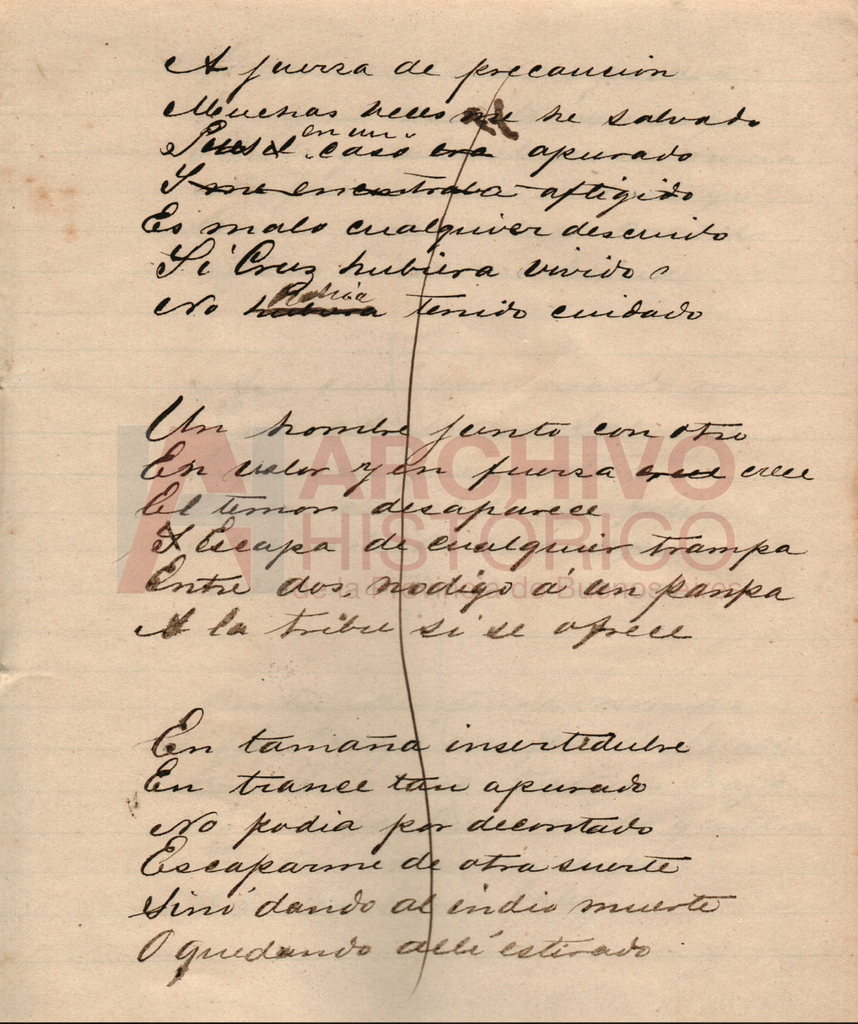 A fuerza de precaucion
Muchas veces me he salvado
en un
Pues el caso era apurado
Y me encontraba afligido
Es malo cualquier descuido
Si Cruz hubiera vivido
Habria
No hubiera tenido cuidado
Un hombre junto con otro
En valor y en fuerza crece
El temor desaparece
Y Escapa de cualquier trampa
Entre dos, no digo á un panpa
A la tribu si se ofrece
En tamaña insertidubre
En trance tan apurado
No podia por decontado
Escaparme de otra suerte
Sinó dando al indio muerte
O quedando allí estirado
ARCHIVO
HISTORICO
de la Provincia de Buenos Aires